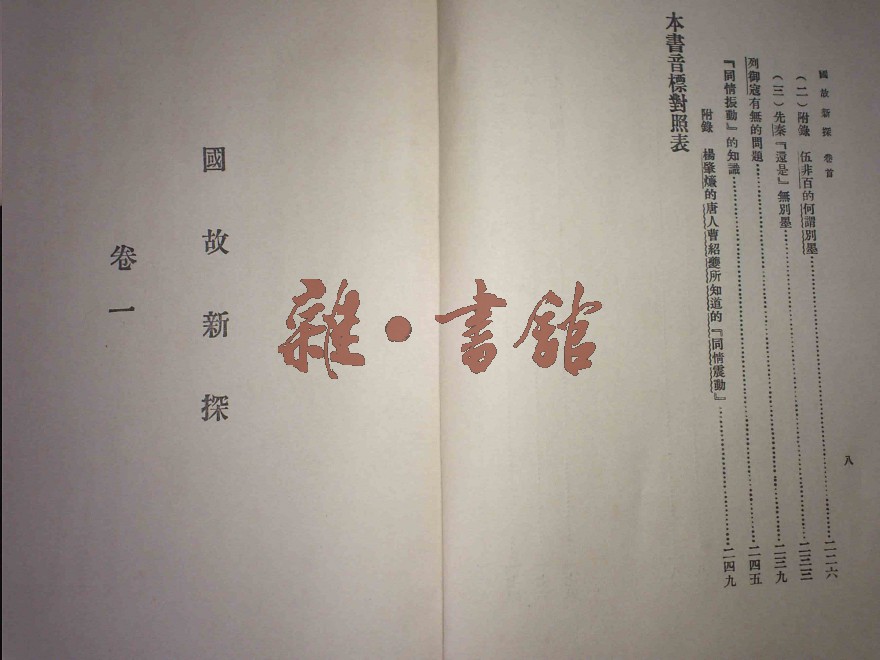 國故新探 卷首
八
(二)附錄 伍非百的何謂別墨……二二六
(三)先秦『還是』無別墨……二三三
列御寇有無的問題……二三九
『同情振動』的知識……二四五
附錄 楊肇燫的唐人曹紹夔所知道的『同情震動』……二四九
本書音標對照表
國故新探
卷一
雜·書館